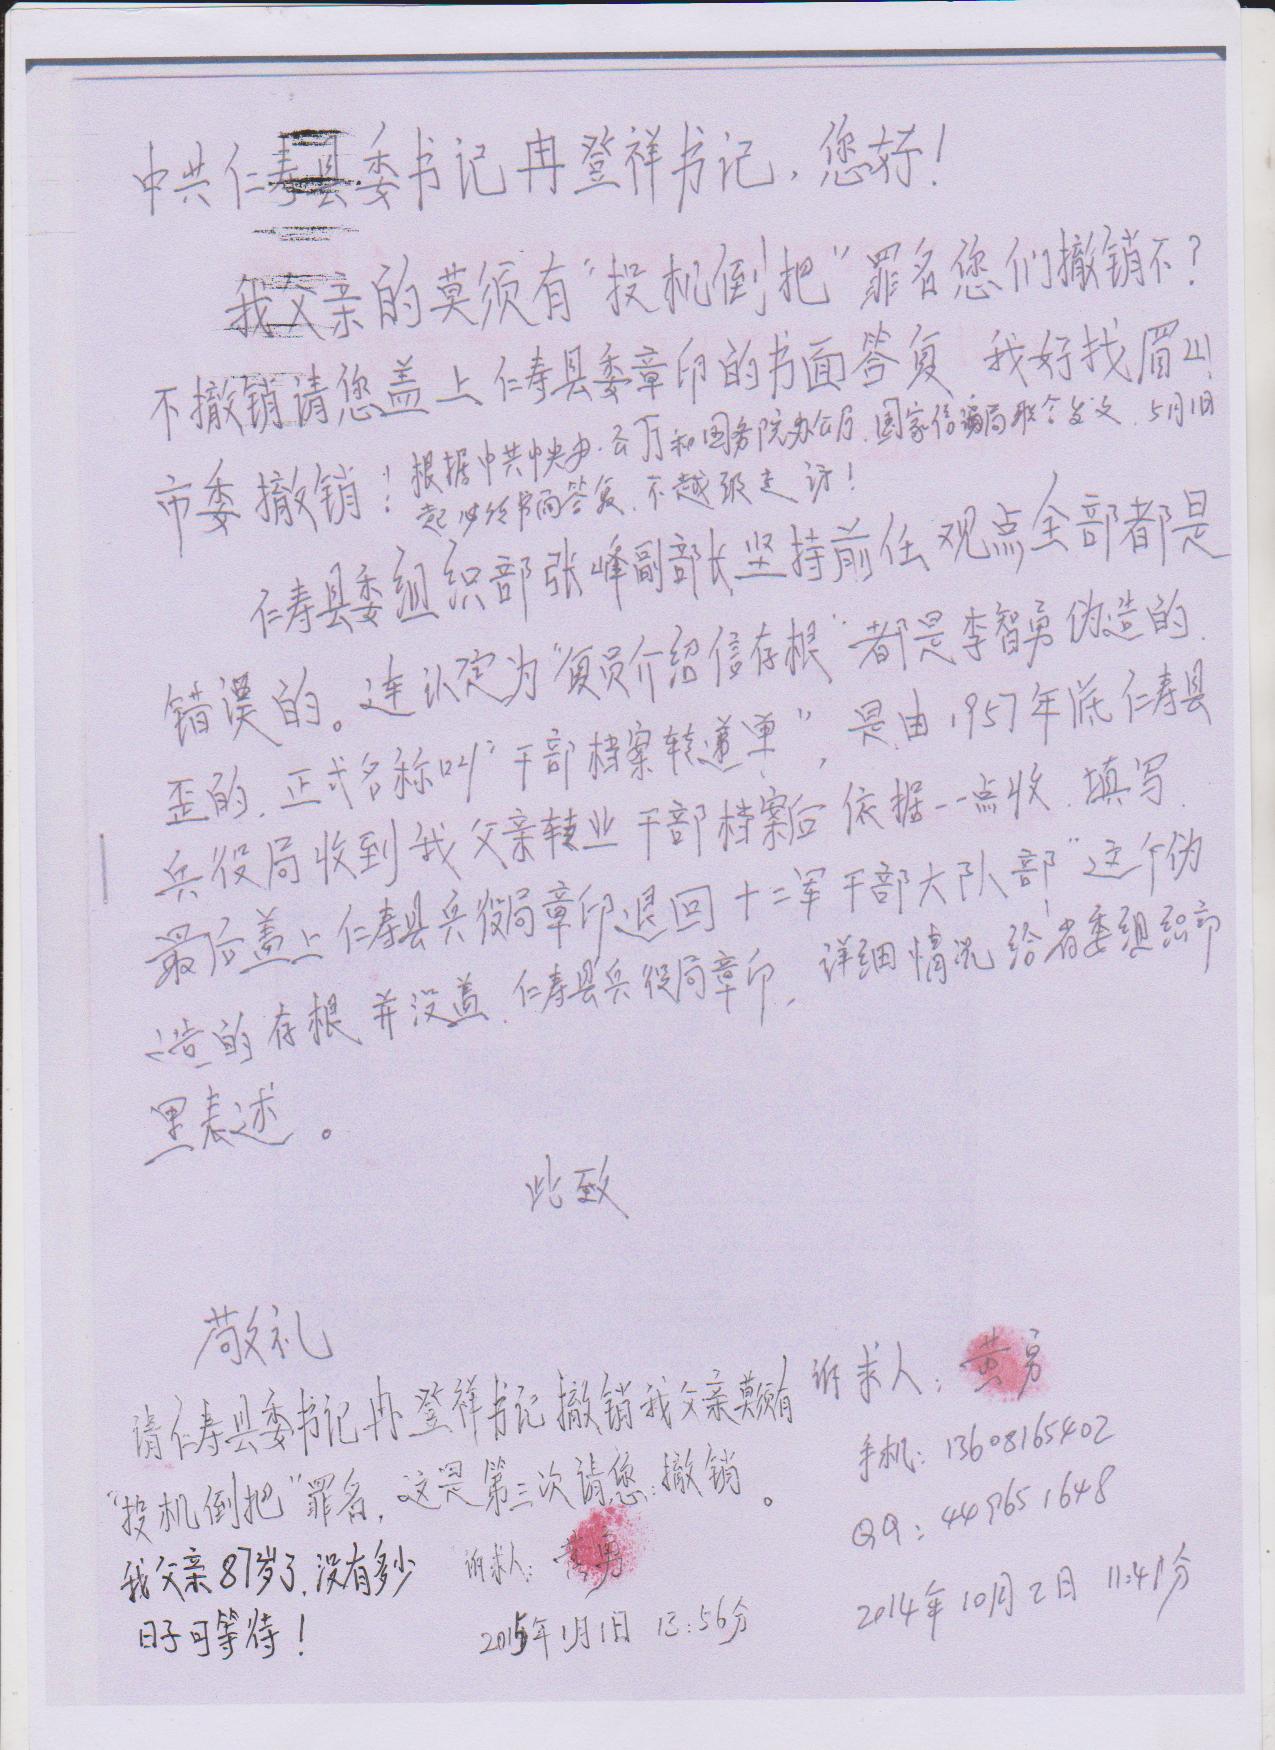 中共仁寿县委书记冉登祥书记，您好！
我父亲的莫须有“投机倒把”罪名您们撤销不？
不撤销请您盖上仁寿县委章印的书面答复 我好找眉山
市委撤销！
根据中共中央办公厅和国务院办公厅、国家信访局联合发文，5月1日
起必须书面答复，不越级走访！
仁寿县委组织部张峰副部长坚持前任观点全部都是
错误的。连认定为“复员介绍信存根”都是李智勇伪造的、
歪的，正式名称叫“干部档案转递单”，是由1957年底仁寿县
兵役局收到我父亲转业干部档案后依据一一点收、填写、
最后盖上仁寿县兵役局章印退回十二军干部大队部”这个伪
造的存根并没盖仁寿县兵役局章印，详细情况给省委组织部
里表述。
此致
敬礼
诉求人：黄勇
手机：13608165402
QQ：449651648
2014年10月2日 11:41分
请仁寿县委书记冉登祥书记撤销我父亲莫须有
“投机倒把”罪名，这是第三次请您撤销。
我父亲87岁了，没有多少
日子可等待！
诉求人：黄勇
2015年1月1日 13:56分